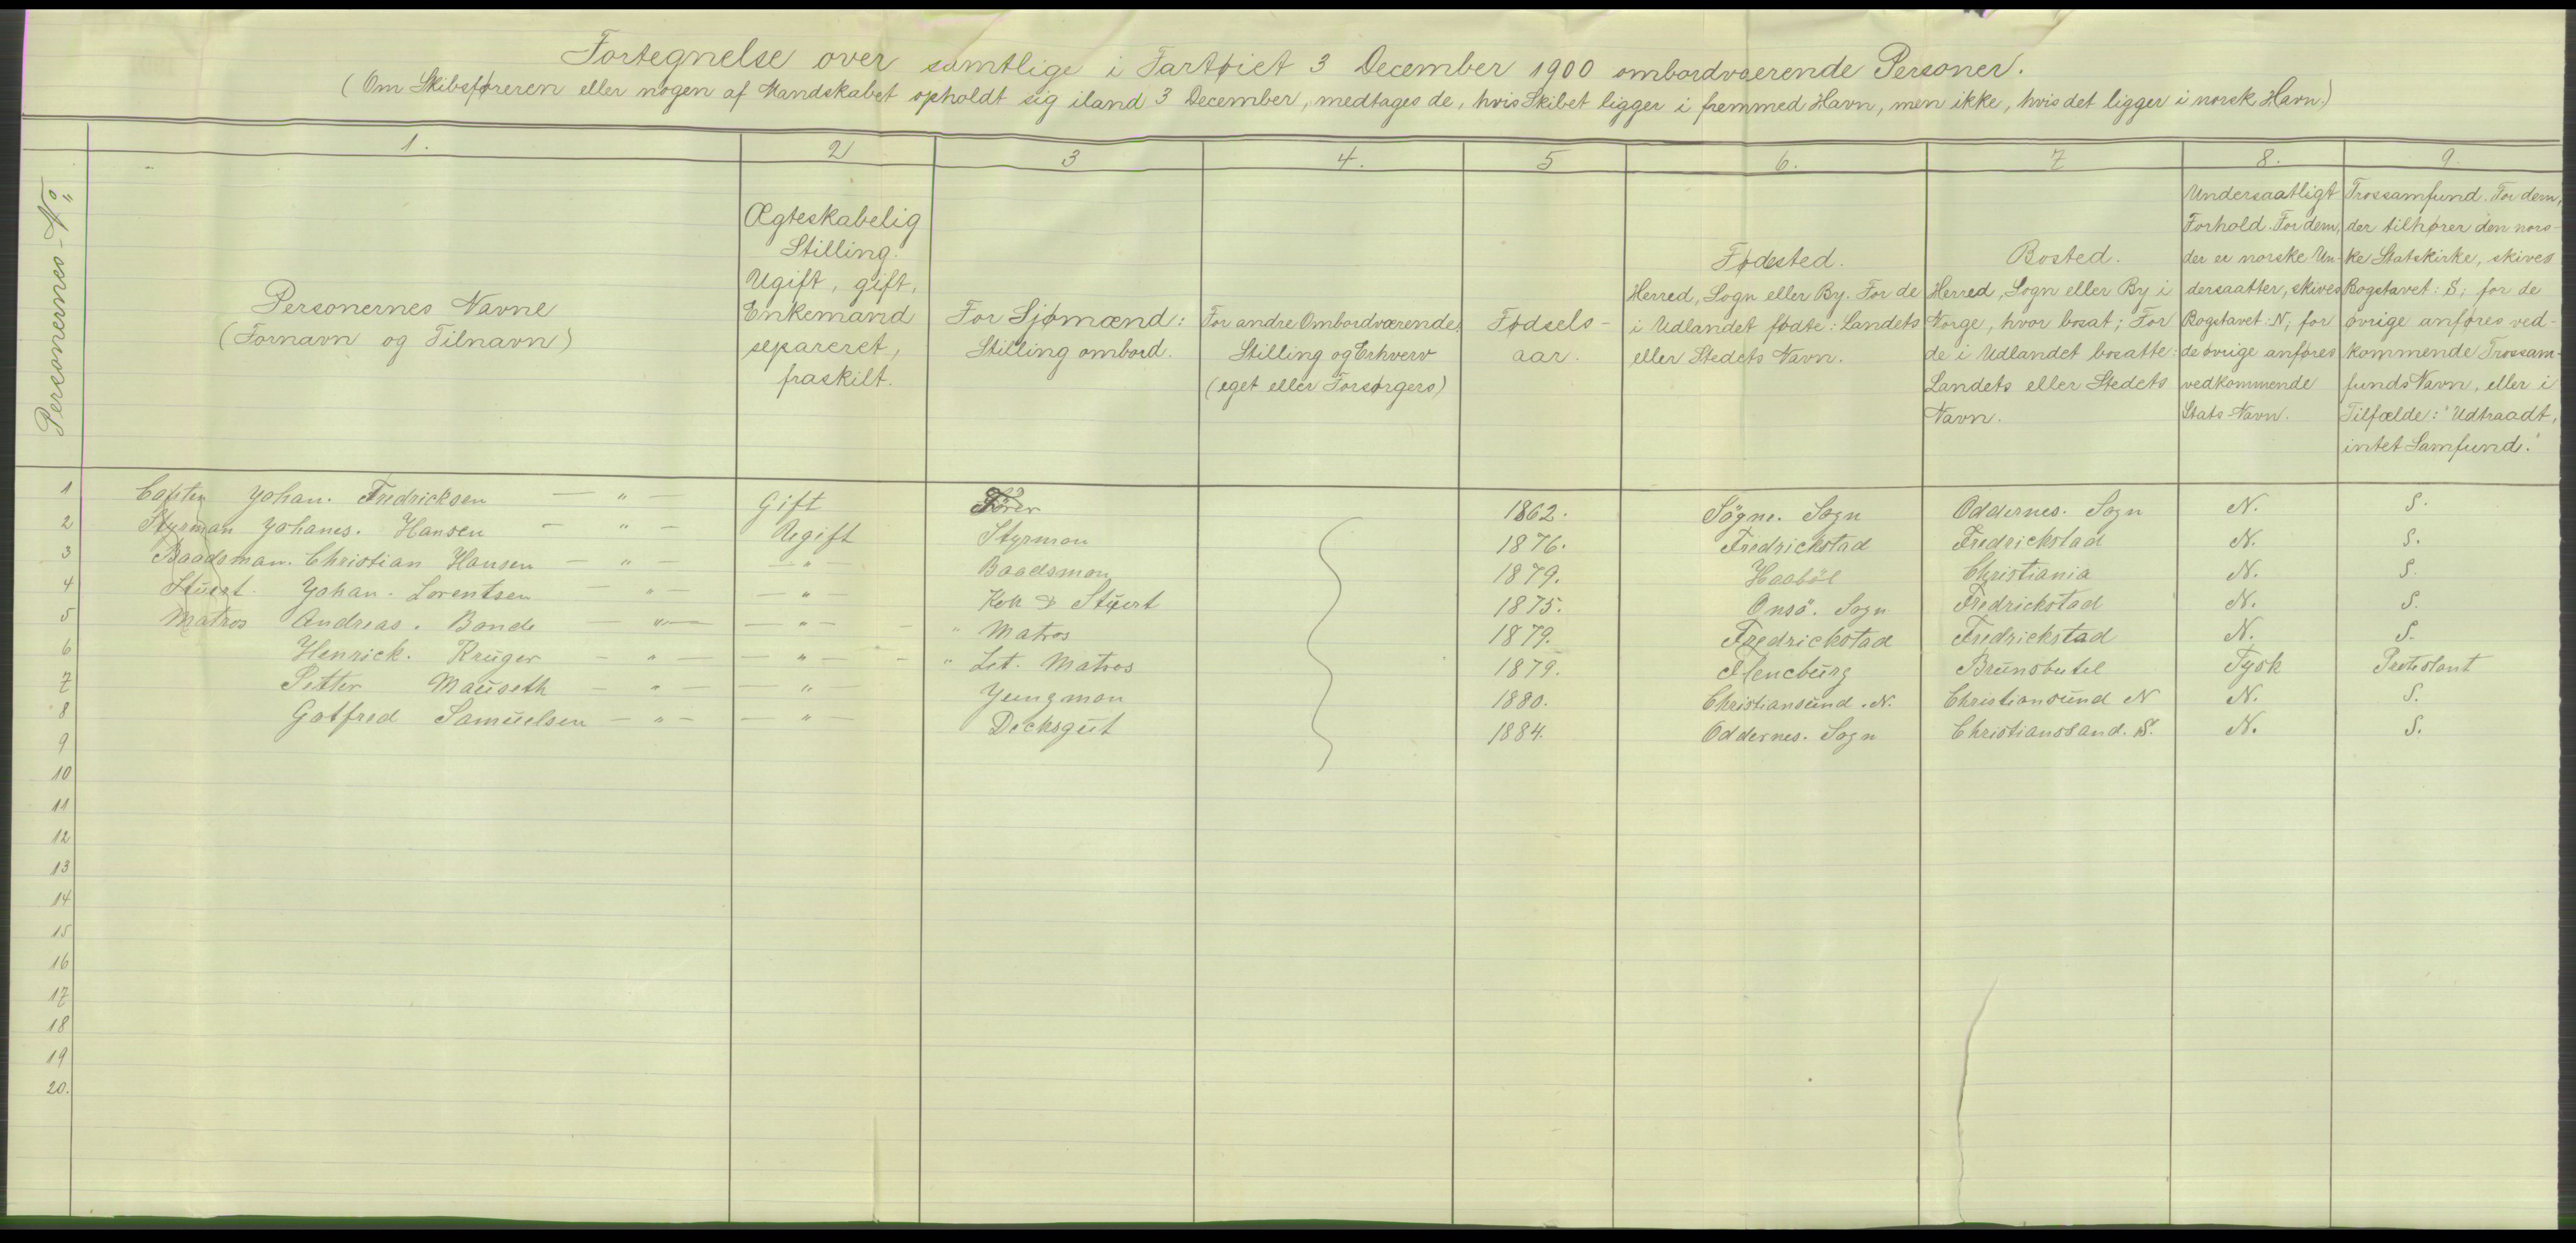 Fortegnelse over samtlige i Fartøiet 3 December 1900 ombordværende Personer.
(Om Skibsføreren eller nogen af Mandskabet opholdt sig iland 3 December, medtages de, hvis Skibet ligger i fremmed Havn, men ikke, hvis det ligger i norsk Havn.)
Personernes - No.
1.
2
3
4.
5
6.
7
8.
9.
Personernes Navne
(Fornavn og Tilnavn)
Ægteskabelig
Stilling.
Ugift, gift,
Enkemand
separeret,
fraskilt.
For Sjømænd:
Stilling ombord.
For andre Ombordværende:
Stilling og Erhverv
(eget eller Forsørgers)
Fødsels-
aar.
Fødested.
Herred, Sogn eller By. For de
i Udlandet fødte: Landets
eller Stedets Navn.
Bosted.
Herred, Sogn eller By i
Norge, hvor bosat; For
de i Udlandet bosatte:
Landets eller Stedets
Navn.
Undersaatligt
Forhold. For dem,
der er norske Un-
dersaatter, skives
Bogstavet: N; for
de øvrige anføres
vedkommende
Stats Navn.
Trossamfund. For dem,
der tilhører den nors-
ke Statskirke, skives
Bogstavet: S; for de
øvrige anføres ved-
kommende Trossam-
funds Navn, eller i
Tilfælde: "Udtraadt,
intet Samfund."
1 Capten Johan. Fredricksen — " — Gift Förer 1862. Sögne. Sogn Oddernes. Sogn N. S.
2 Styrman Johanes. Hansen — " — Ugift Styrman 1876. Fredrickstad Fredrickstad N. S.
3 Baadsman. Christian Hansen — " — — " — Baadsman 1879. Haaböl Christiania N. S.
4 Stuert. Johan. Lorentsen — " — — " — Kok & Stuert 1875. Onsö. Sogn Fredrickstad N. S.
5 Matros Andreas. Bande — " — — " — - " Matros 1879. Fredrickstad Fredrickstad N. S.
6 Henrick. Krüger — " — — " — - " Let. Matros 1879. Flencburg Brunsbutel Tysk Protestant
7 Petter Mauseth — " — — " — Jungman 1880. Christiansund. N. Christiansund N N. S.
8 Gotfred Samuelsen — " — — " — Decksgut 1884. Oddernes. Sogn Christianssand. S. N. S.
9
10
11
12
13
14
15
16
17
18
19
20.